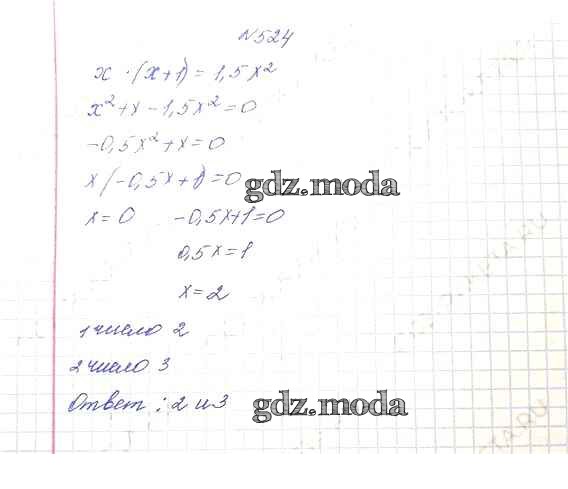 №524
x · (x+1) = 1,5x²
x² + x - 1,5x² = 0
-0,5x² + x = 0
x(-0,5x+1) = 0
gdz.moda
x = 0 -0,5x+1=0
0,5x=1
x=2
1 число 2
2 число 3
Ответ: 2 и 3
gdz.moda